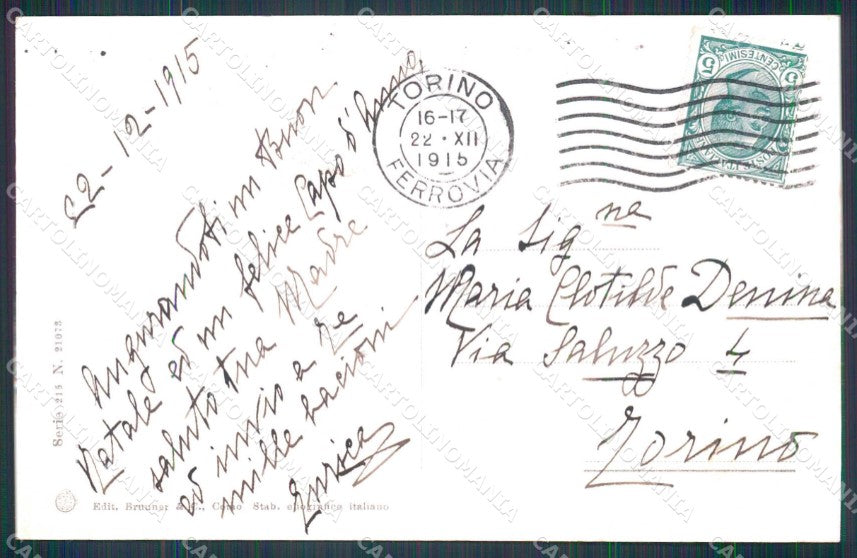 22-12-1915
Augurandoti un Buon
Natale ed un felice Capo d'Anno,
saluto tua Madre
ed invio a te
mille bacioni
Enrica
TORINO
16-17
22 · XII
1915
FERROVIA
5 CENTESIMI 5
POSTE ITALIANE
La Sig na
Maria Clotilde Denina
Via Saluzzo 4
Torino
Serie 215 N. 21073
Edit. Brunner & C., Como Stab. eliografico italiano
CARTOLINOMANIA